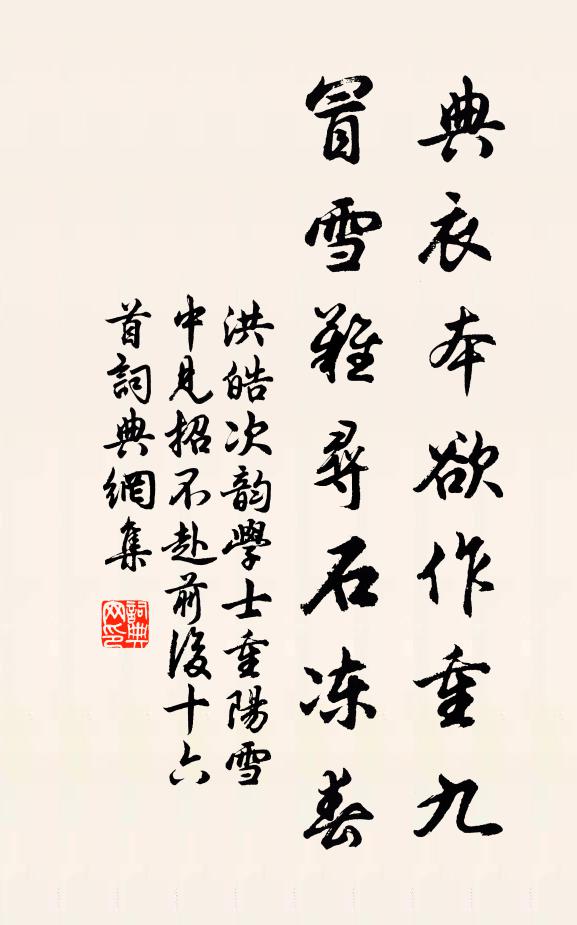 典衣本欲作重九
冒雪難尋石凍春
洪皓次韵學士重陽雪
中見招不赴前後十六
首詞典網集
詞典
网印